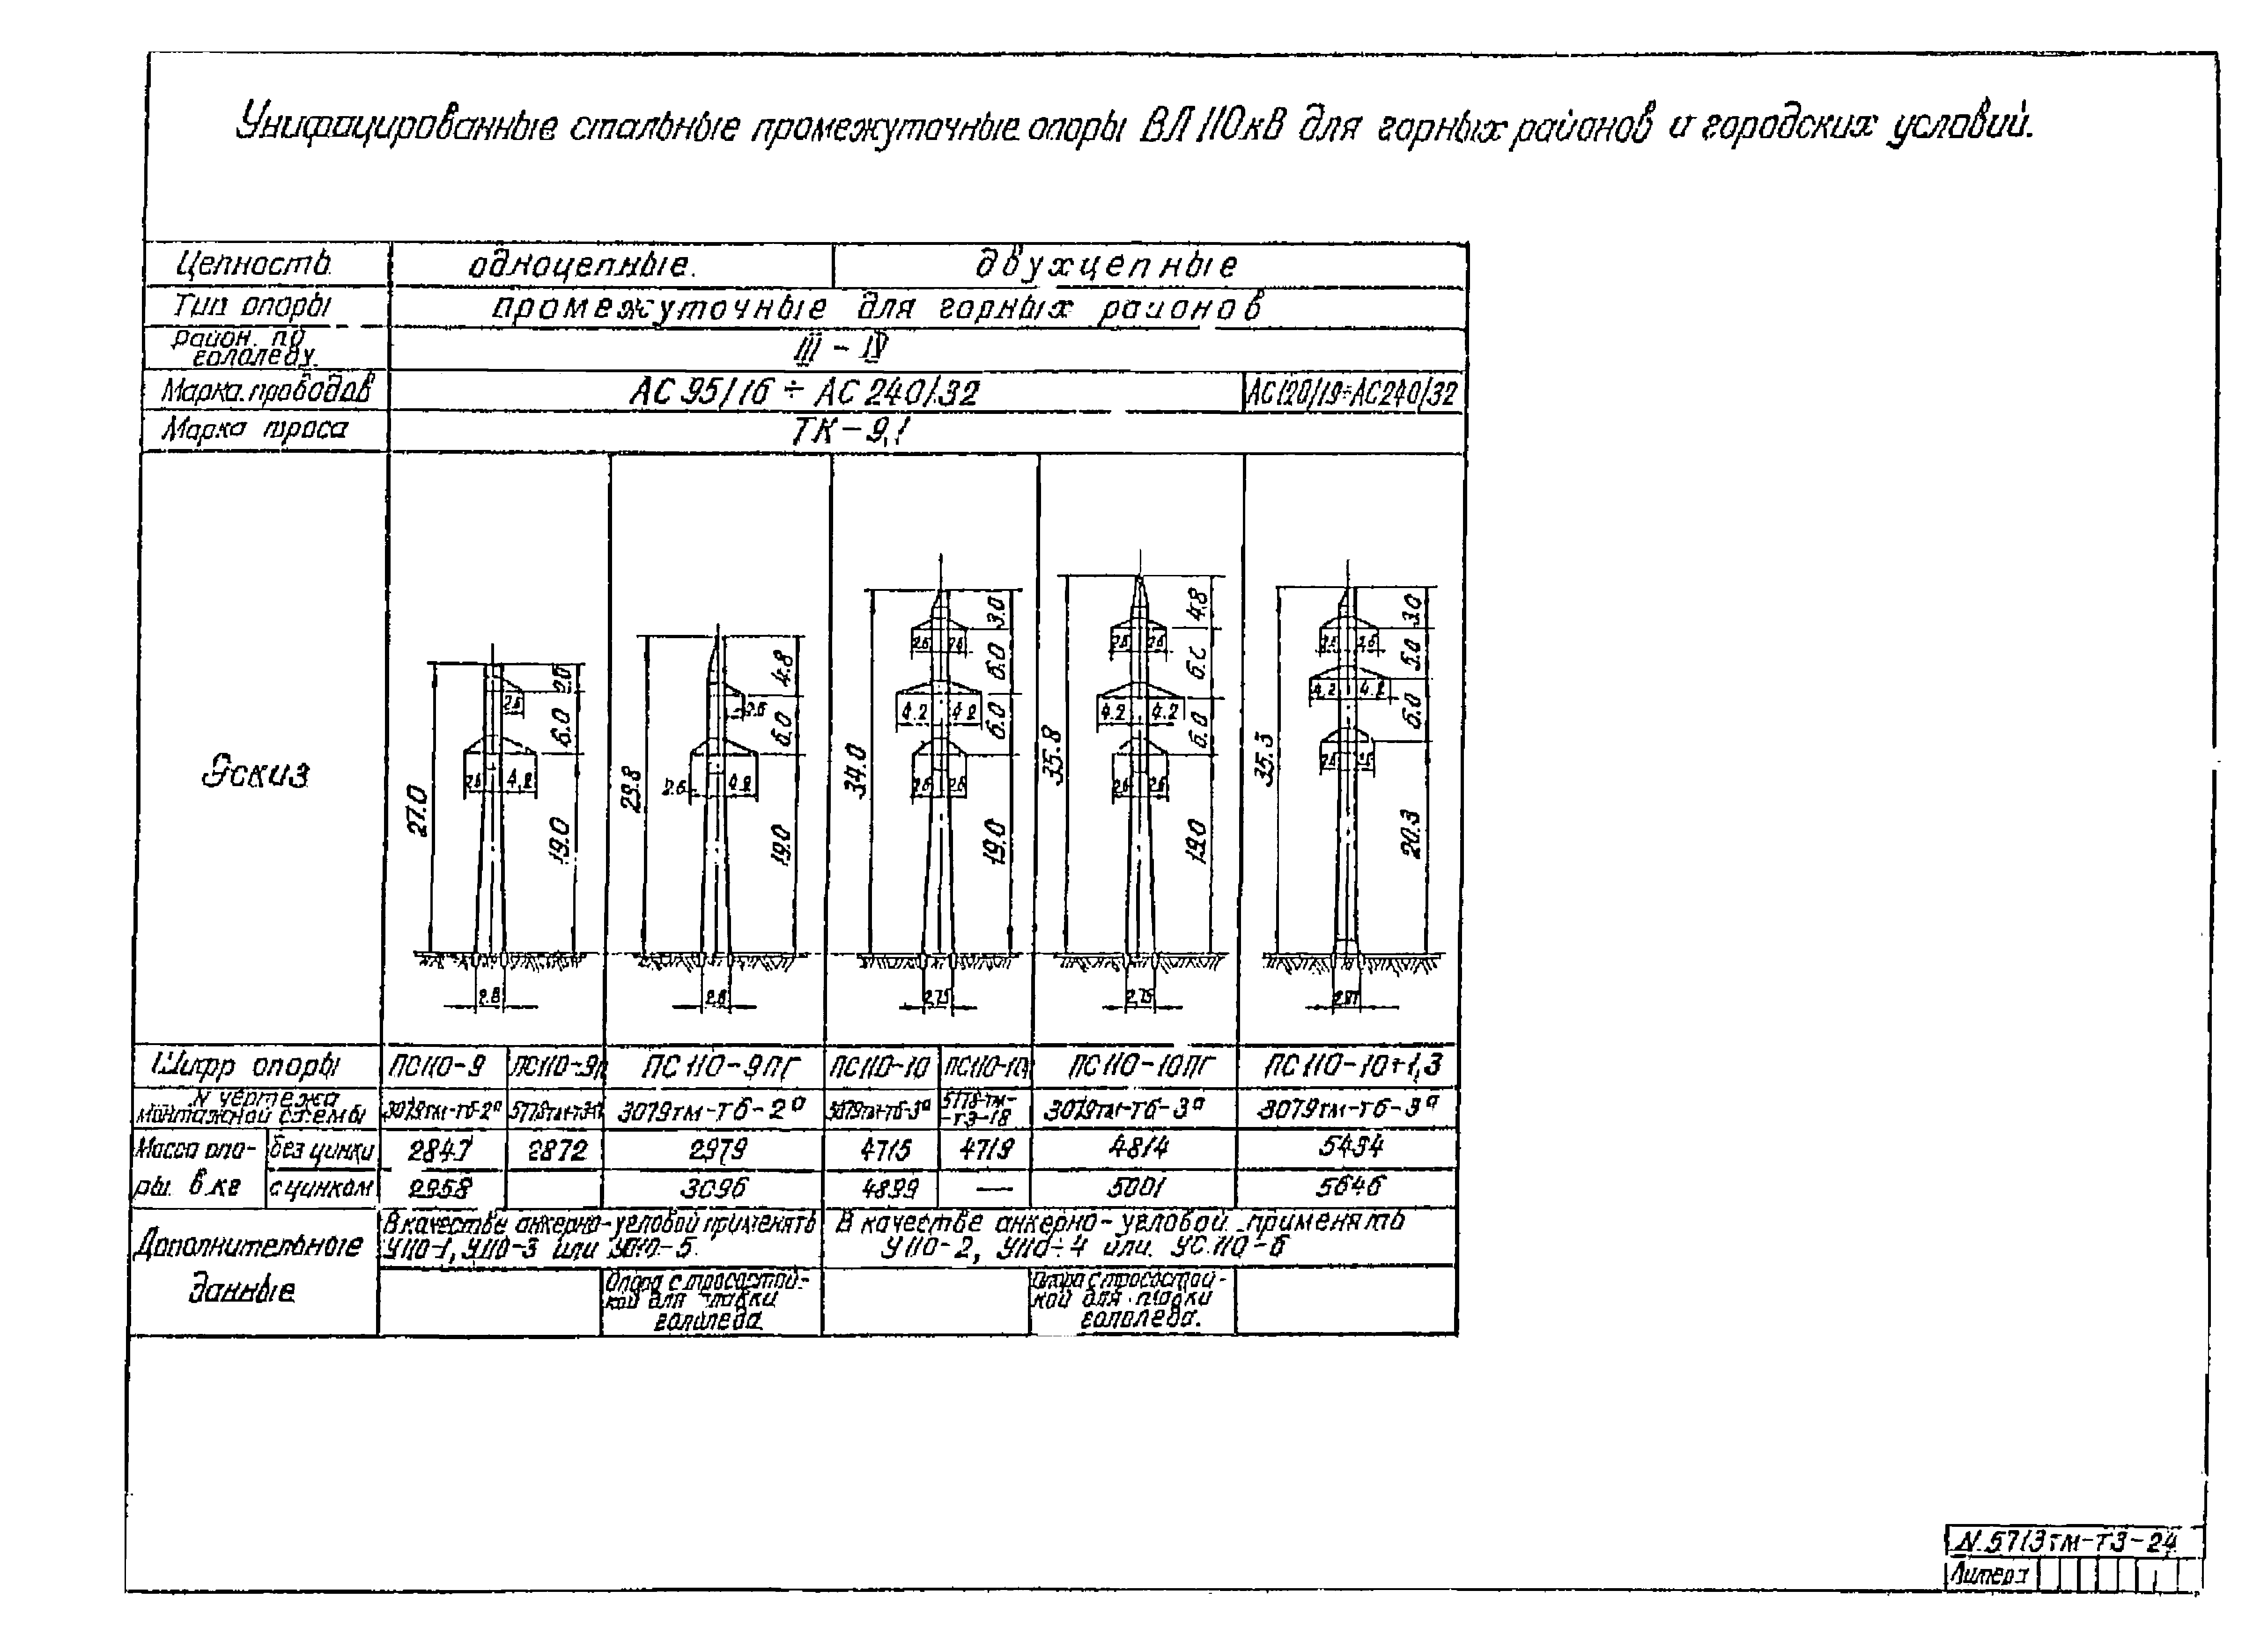 Унифицированные стальные промежуточные опоры ВЛ 110 кВ для горных районов и городских условий.
Цепность одноцепные. двухцепные
Тип опоры промежуточные для горных районов
Район. по гололеду. III - IV
Марка проводов АС 95/16 ÷ АС 240/32 АС120/19÷АС240/32
Марка троса ТК-9,1
Эскиз
27.0 2.0 6.0 19.0 2.6 2.6 4.2 2.8
29.8 4.8 6.0 19.0 2.6 2.6 4.2 2.8
34.0 3.0 6.0 6.0 19.0 2.6 2.6 4.2 4.2 2.6 2.6 2,75
35.8 4.8 6.0 6.0 19.0 2.6 2.6 4.2 4.2 2.6 2.6 2,75
35.3 3.0 6.0 6.0 20.3 2.6 2.6 4.2 4.2 2.6 2.6
Шифр опоры ПС110-9 ПС110-9п ПС110-9ПГ ПС110-10 ПС110-10п ПС110-10ПГ ПС110-10+1,3
N чертежа
монтажной схемы 3079тм-т6-2а 3079тм-т6-2а 3079тм-т6-3а 5778тм--т3-18 3079тм-т6-3а 3079тм-т6-3а
Масса опо- без цинка 2847 2872 2979 4715 4719 4814 5494
ры. в кг с цинком 2958 3096 4899 — 5001 5646
Дополнительные
данные
В качестве анкерно-угловой применять
У110-1, У110-3 или УС110-5.
В качестве анкерно-угловой применять
У110-2, У110-4 или. УС 110-6
Опора с тросостой-
кой для плавки
гололеда
Опора с тросостой-
кой для плавки
гололеда.
N.5713тм-т3-24
Литера